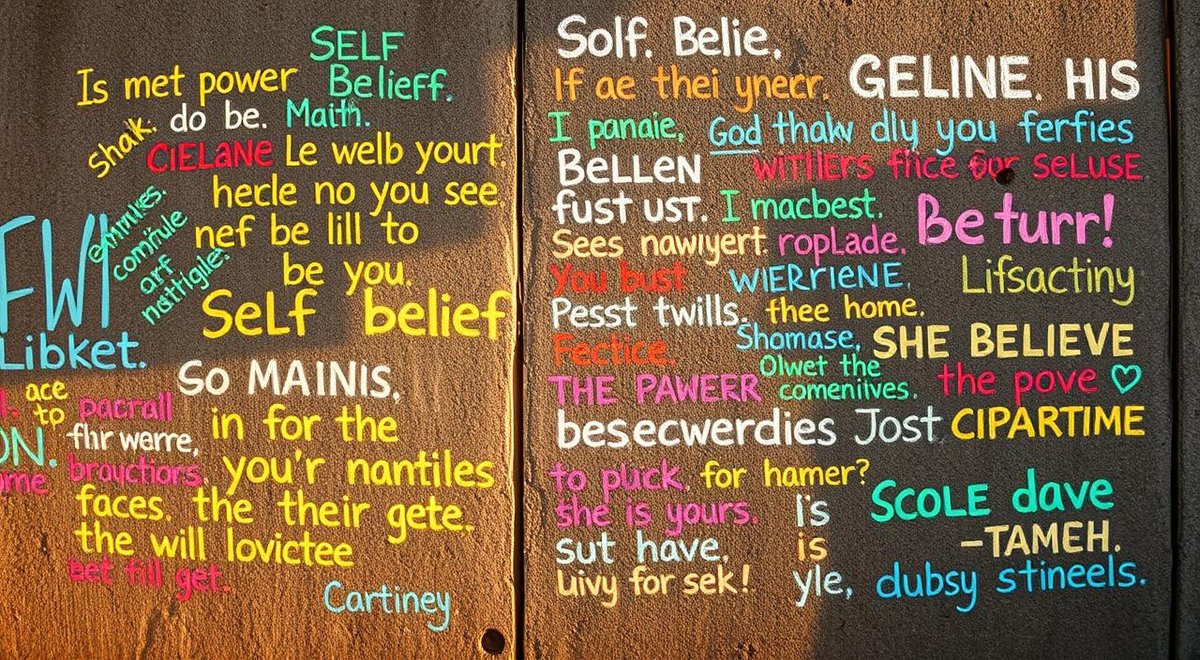 SELF
Is met power Belieff.
Shak. do be. Maith.
CIELANE Le welb yourt.
hecle no you see.
commule
arf
nef be lill to
be you.
FWI
Self belief
Libket.
So MAINIS.
ace
to pacrall in for the
ON. fhr werre,
brauctiors. you'r nantiles
faces. the their gete.
the will lovictee
bet fill get.
Cartiney
Solf. Belie.
If ae thei ynecr. GELINE. HIS
I panaie. God thakw dly you ferfies
BELLEN WITllERS ffice our SELUSE
fust ust. I macbest. Be turr!
Sees nawiyert. roplade.
You bust WIERrIENE. Lifsactiny
Pesst twills. thee home.
Fectice. Shomase, SHE BELIEVE
THE PAWERR Olwet the the pove ♡
comeniives.
besecwerdies Jost CIPARTIME
to pluck. for hamer?
she is yours. I's Scole dave
sut have. is -TAMEH.
uivy for sek! yle, dubsy stineels.